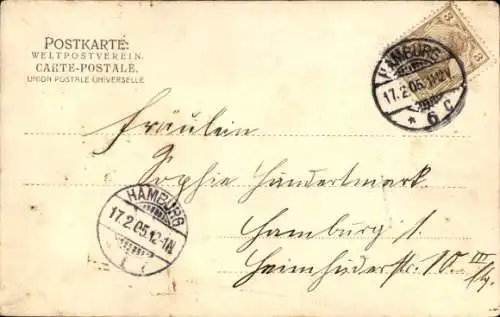 POSTKARTE:
WELTPOSTVEREIN.
CARTE-POSTALE.
UNION POSTALE UNIVERSELLE
3 3
HAMBURG
17.2.05.11-12V
* 6 c
Fräulein
Sophie Hundertmark
Hamburg 1.
Heimhuderstr. 10 III
HAMBURG
17.2.05.12-1N